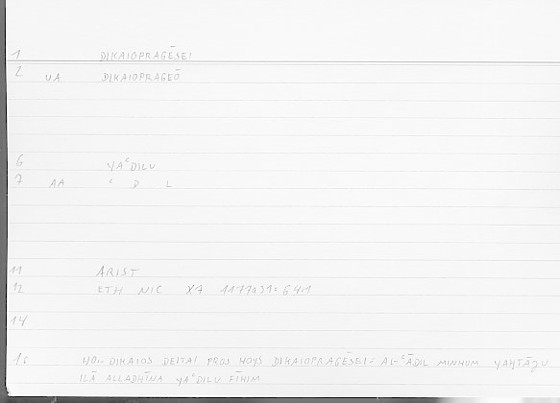 1 DIKAIOPRAGĒSEI
2 VA DIKAIOPRAGEŌ
6 YAᶜDILU
7 AA ᶜ D L
11 ARIST
12 ETH NIC X7 1177a31= 641
14
15 HO- DIKAIOS DEITAI PROS HOYS DIKAIOPRAGĒSEI= AL-ᶜĀDIL MINHUM YAḤTĀǦU
ILĀ ALLADHĪNA YAᶜDILU FĪHIM